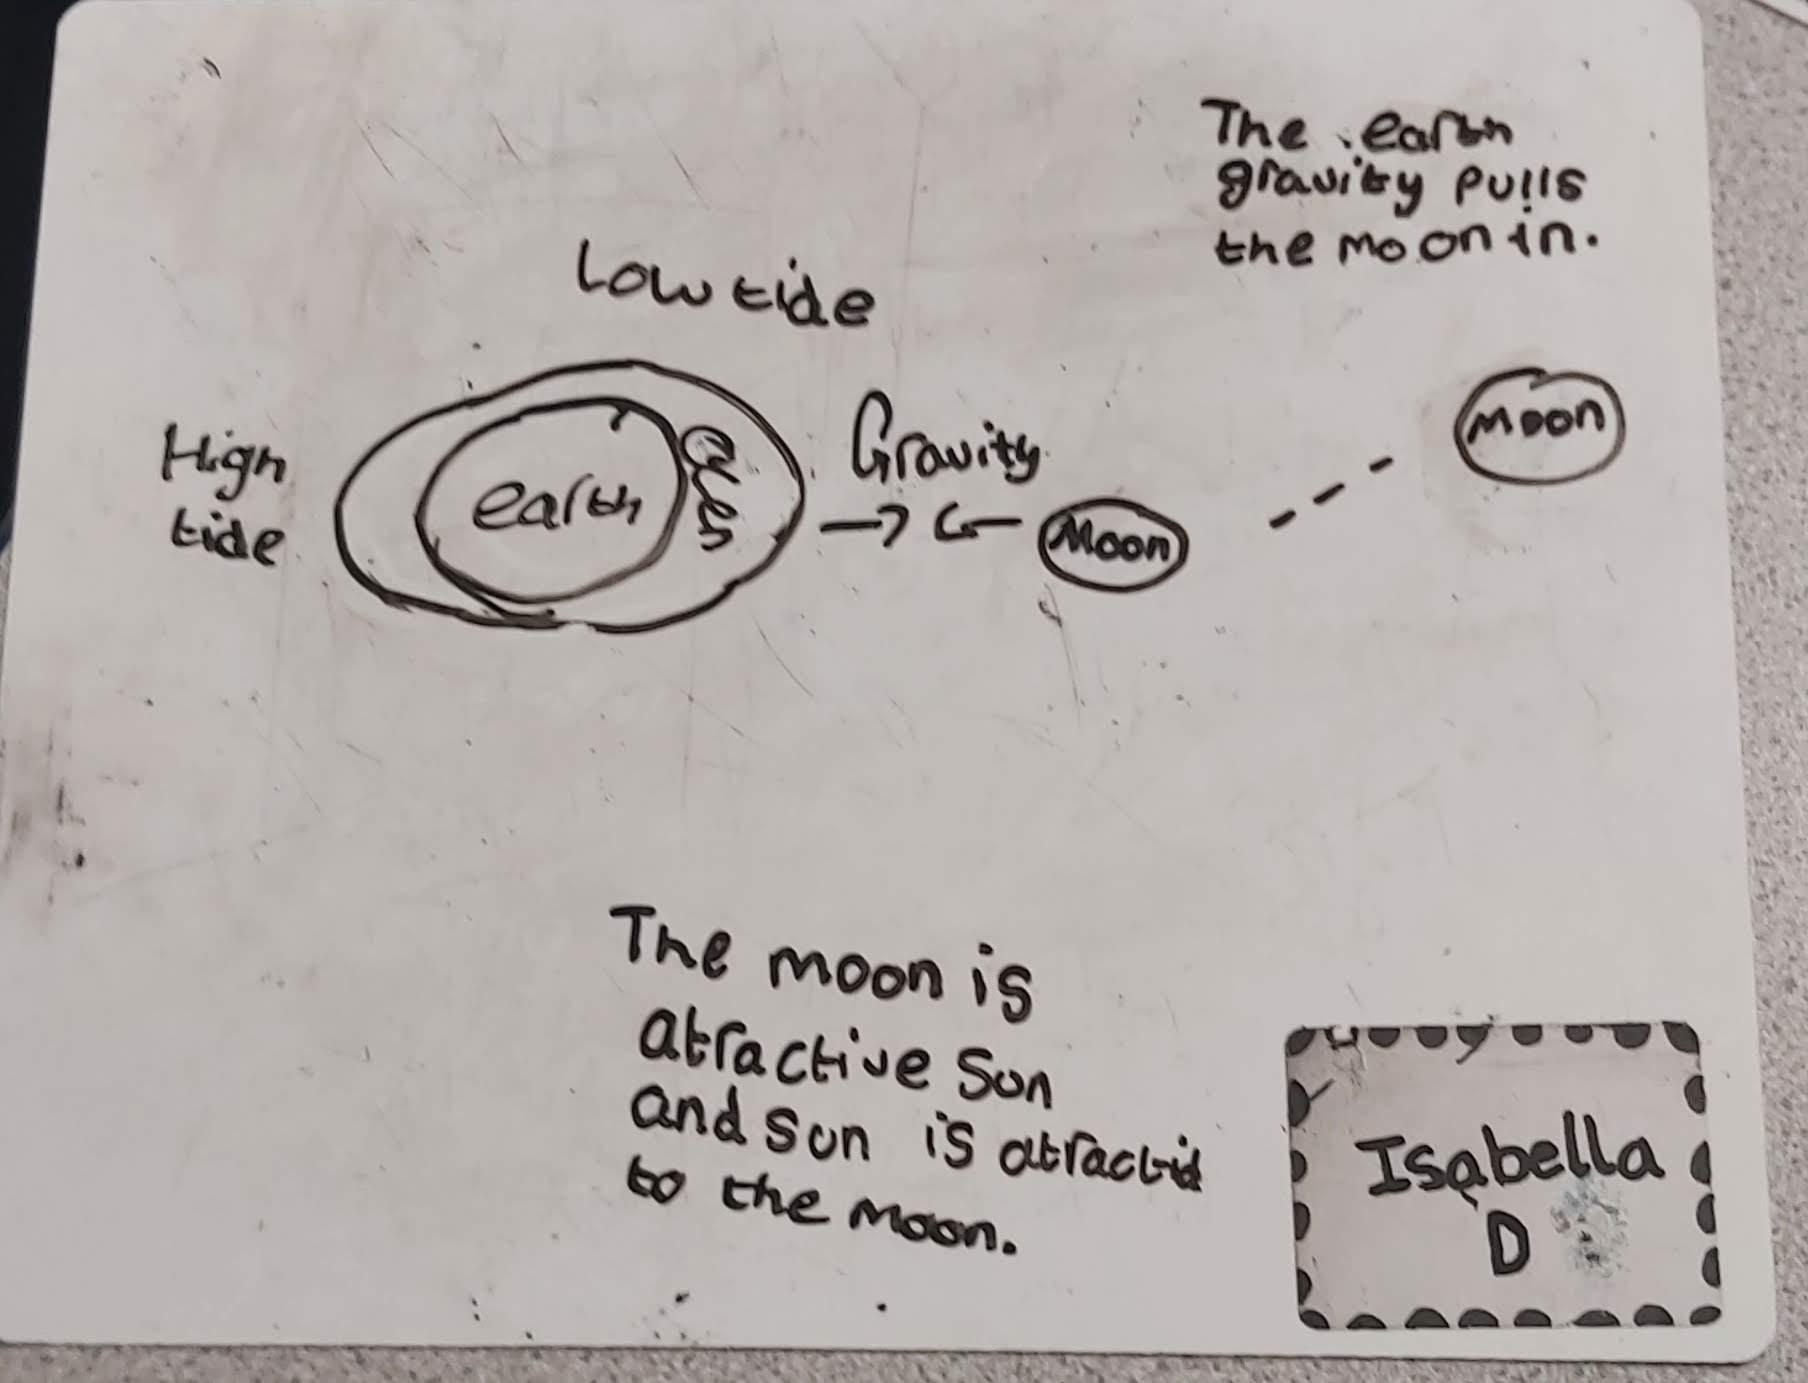 The earth
gravity pulls
the moon in.
Low tide
High
tide
earth
Gravity
Moon
Moon
The moon is
atractive Sun
and sun is atractid
to the moon.
Isabella
D